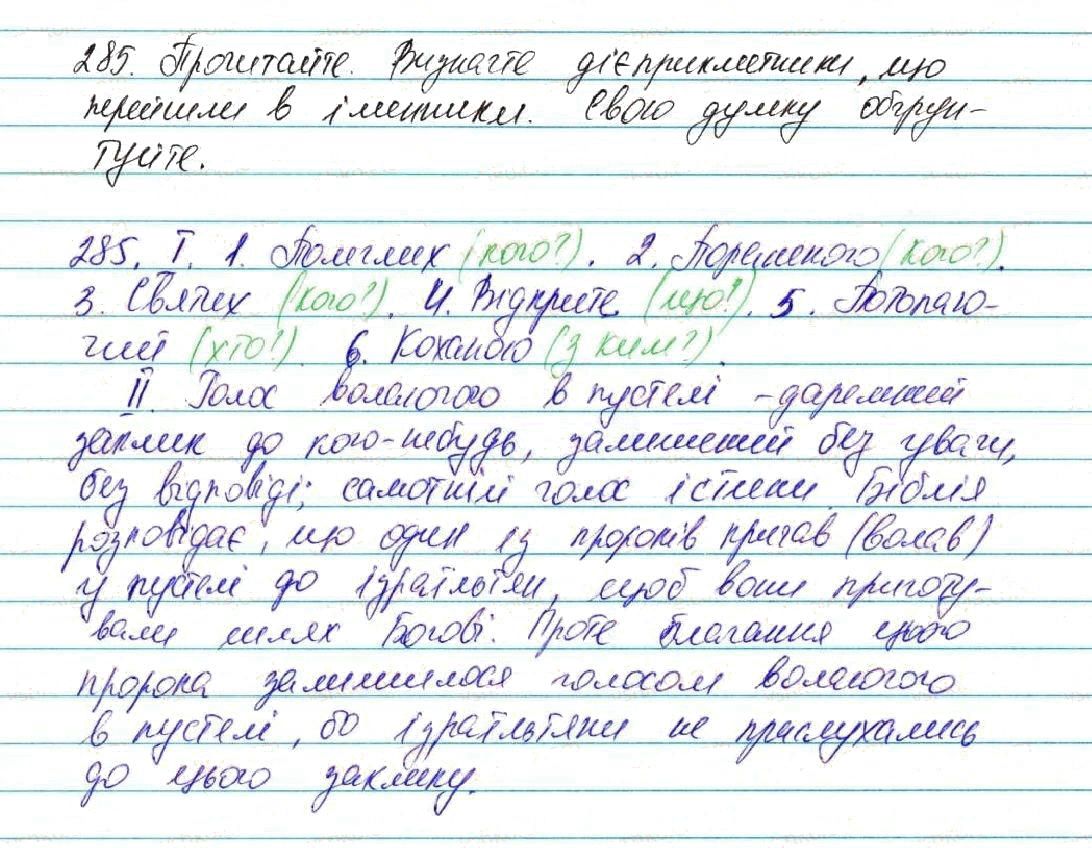 285. Прочитайте. Визначте дієприкметники, що
перейшли в іменники. Свою думку обґрун-
туйте.
285. І. 1. Полеглих (кого?). 2. Пораненого (кого?).
3. Святих (кого?). 4. Відкрите (що?). 5. Потопаю-
чий (хто?) 6. Коханою (з ким?).
ІІ. Голос волаючого в пустелі - даремний
заклик до кого-небудь, залишений без уваги,
без відповіді; самотній голос істини. Біблія
розповідає, що один із пророків кричав (волав)
у пустелі до ізраїльтян, щоб вони приготу-
вали шлях Богові. Проте благання цього
пророка залишилося голосом волаючого
в пустелі, бо ізраїльтяни не прислухались
до цього заклику.